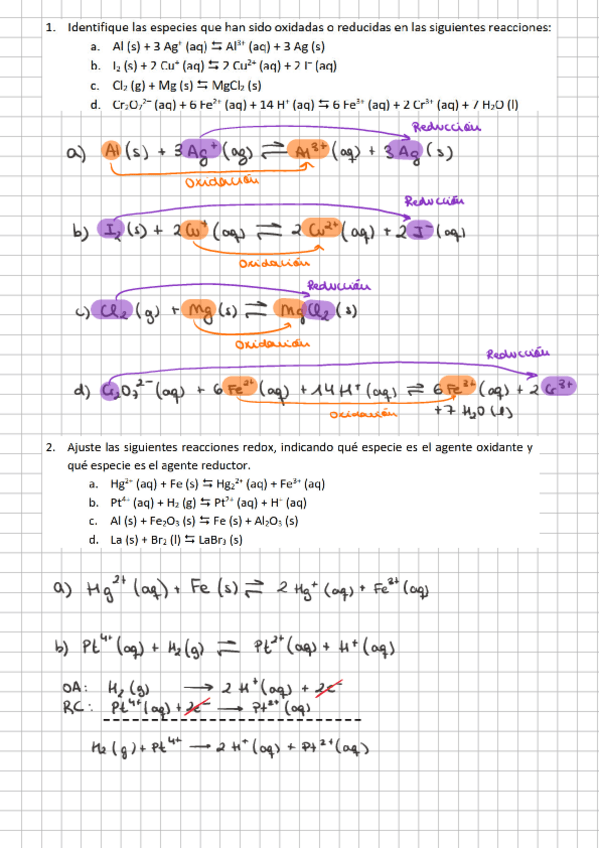 1. Identifique las especies que han sido oxidadas o reducidas en las siguientes reacciones:
a. Al (s) + 3 Ag⁺ (aq) ⇆ Al³⁺ (aq) + 3 Ag (s)
b. I₂ (s) + 2 Cu⁺ (aq) ⇆ 2 Cu²⁺ (aq) + 2 I⁻ (aq)
c. Cl₂ (g) + Mg (s) ⇆ MgCl₂ (s)
d. Cr₂O₇²⁻ (aq) + 6 Fe²⁺ (aq) + 14 H⁺ (aq) ⇆ 6 Fe³⁺ (aq) + 2 Cr³⁺ (aq) + 7 H₂O (l)
Reducción
a) Al (s) + 3 Ag⁺ (aq) ⇌ Al³⁺ (aq) + 3 Ag (s)
Oxidación
Reducción
b) I₂ (s) + 2 Cu⁺ (aq) ⇌ 2 Cu²⁺ (aq) + 2 I⁻ (aq)
Oxidación
Reducción
c) Cl₂ (g) + Mg (s) ⇌ MgCl₂ (s)
Oxidación
Reducción
d) Cr₂O₇²⁻ (aq) + 6 Fe²⁺ (aq) + 14 H⁺ (aq) ⇌ 6 Fe³⁺ (aq) + 2 Cr³⁺
Oxidación + 7 H₂O (l)
2. Ajuste las siguientes reacciones redox, indicando qué especie es el agente oxidante y
qué especie es el agente reductor.
a. Hg²⁺ (aq) + Fe (s) ⇆ Hg₂²⁺ (aq) + Fe³⁺ (aq)
b. Pt⁴⁺ (aq) + H₂ (g) ⇆ Pt²⁺ (aq) + H⁺ (aq)
c. Al (s) + Fe₂O₃ (s) ⇆ Fe (s) + Al₂O₃ (s)
d. La (s) + Br₂ (l) ⇆ LaBr₃ (s)
a) Hg²⁺ (aq) + Fe (s) ⇌ 2 Hg⁺ (aq) + Fe³⁺ (aq)
b) Pt⁴⁺ (aq) + H₂ (g) ⇌ Pt²⁺ (aq) + H⁺ (aq)
OA: H₂ (g) → 2 H⁺ (aq) + 2e⁻
RC: Pt⁴⁺ (aq) + 2e⁻ → Pt²⁺ (aq)
H₂ (g) + Pt⁴⁺ → 2 H⁺ (aq) + Pt²⁺ (aq)